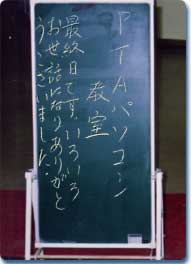 PTAパソコン
教室
最終日です。いろいろ
お世話になりありがと
うございました。